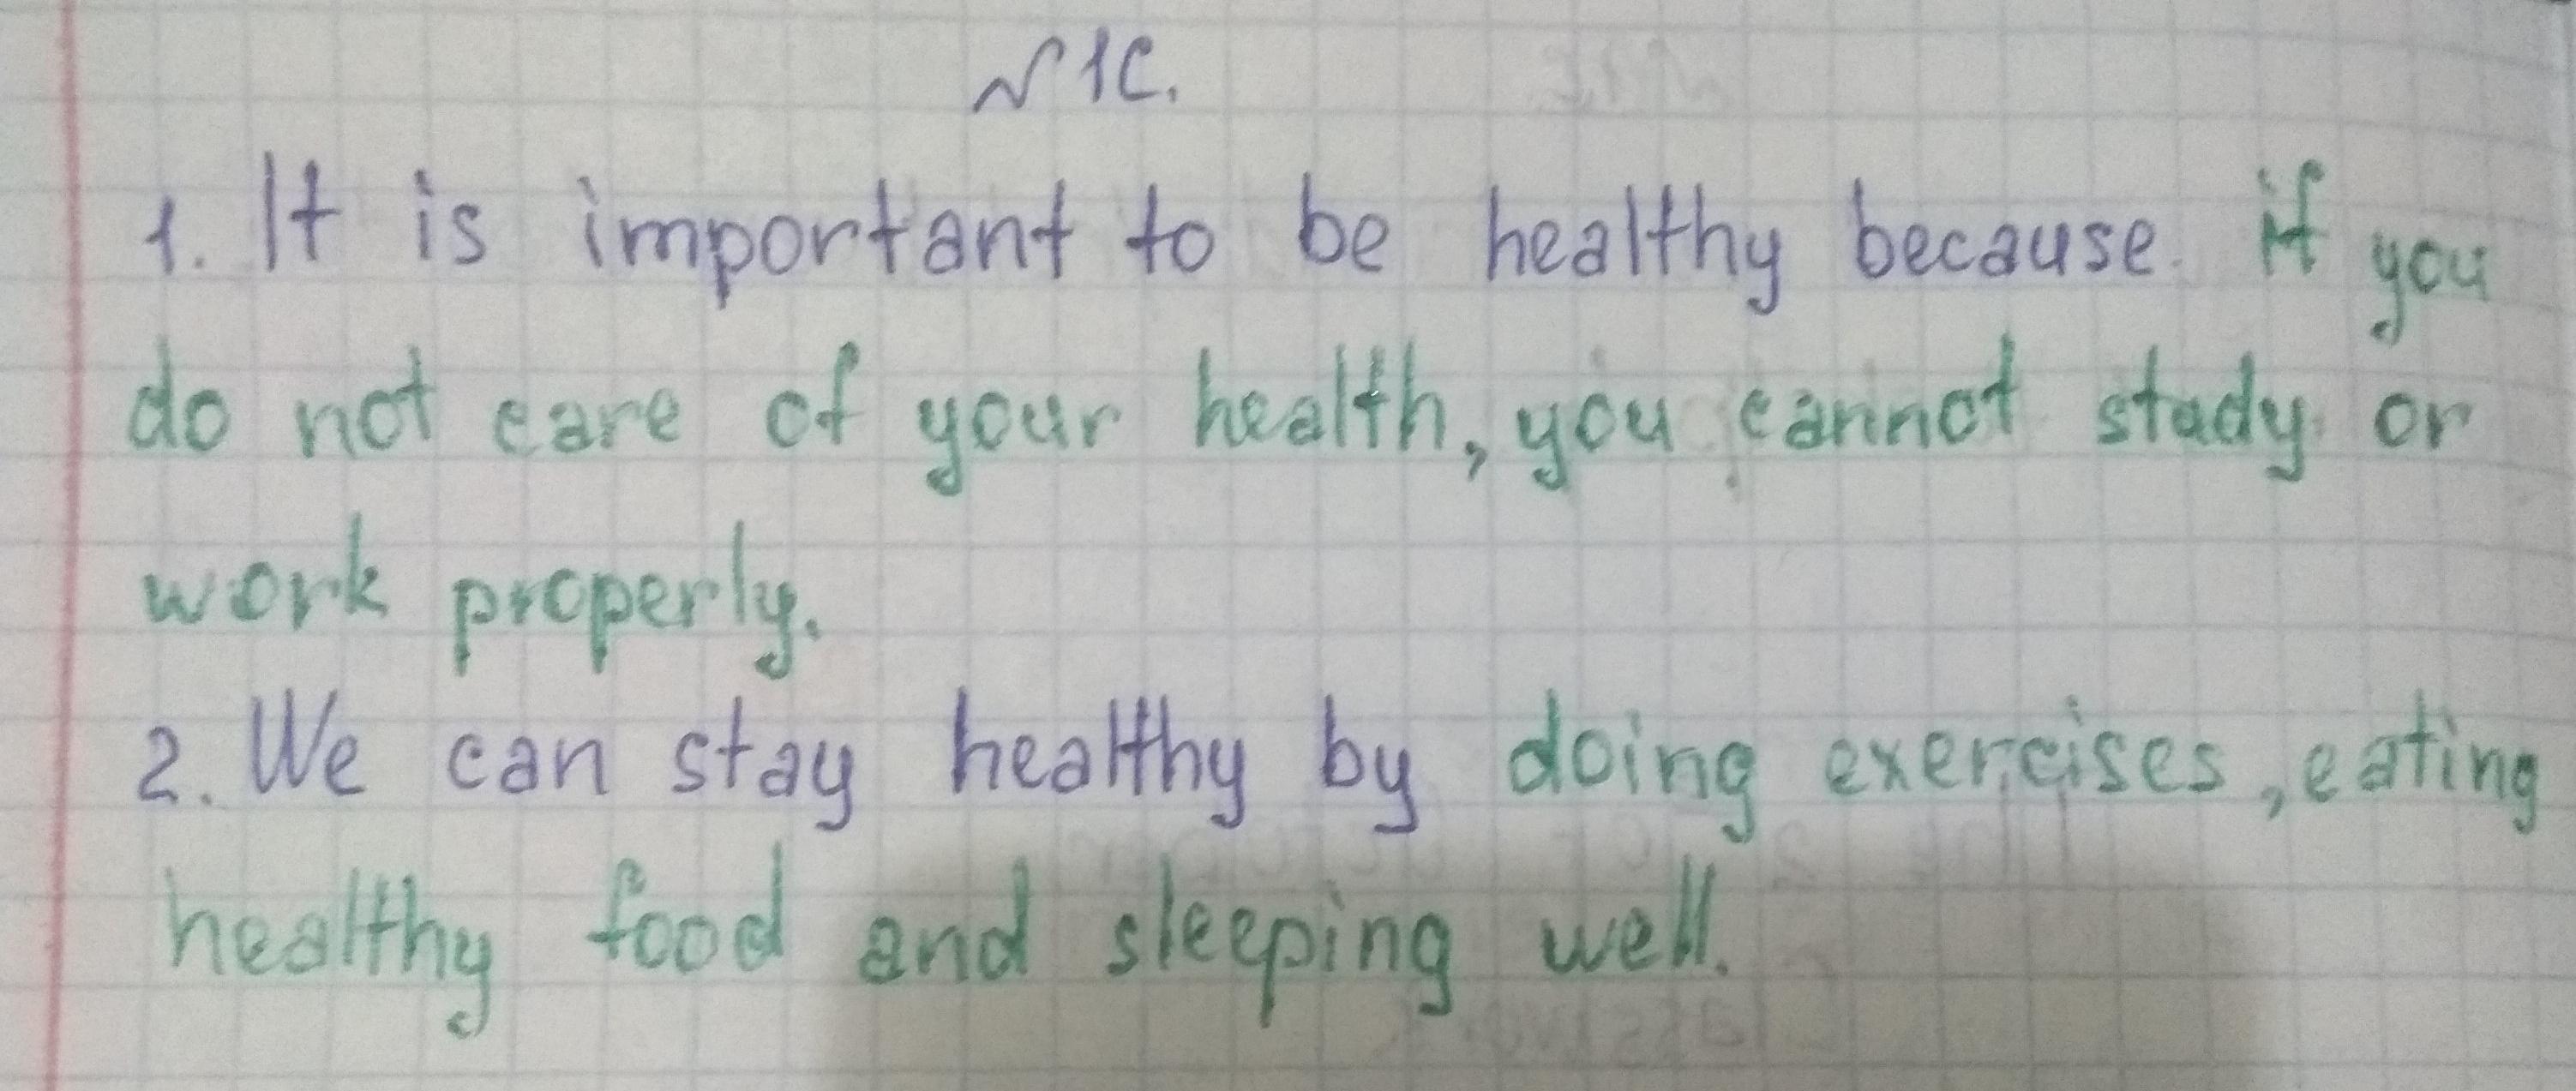 № 1C.
1. It is important to be healthy because if you
do not care of your health, you cannot study or
work properly.
2. We can stay healthy by doing exercises, eating
healthy food and sleeping well.